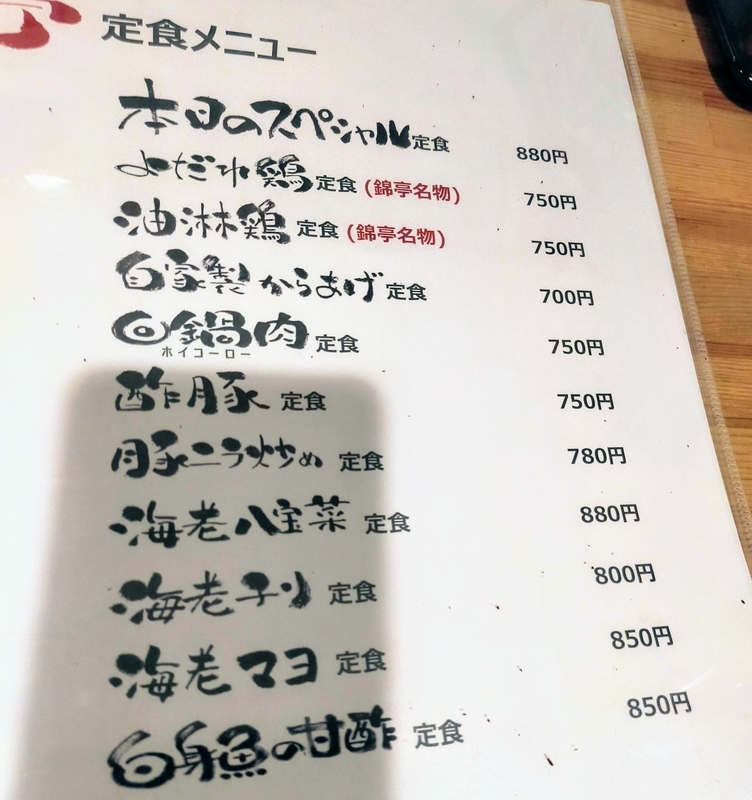 定食メニュー
本日のスペシャル定食 880円
よだれ鶏定食 (錦亭名物) 750円
油淋鶏定食 (錦亭名物) 750円
自家製からあげ定食 700円
回鍋肉定食 750円
ホイコーロー
酢豚定食 750円
豚ニラ炒め定食 780円
海老八宝菜定食 880円
海老チリ定食 800円
海老マヨ定食 850円
白身魚の甘酢定食 850円